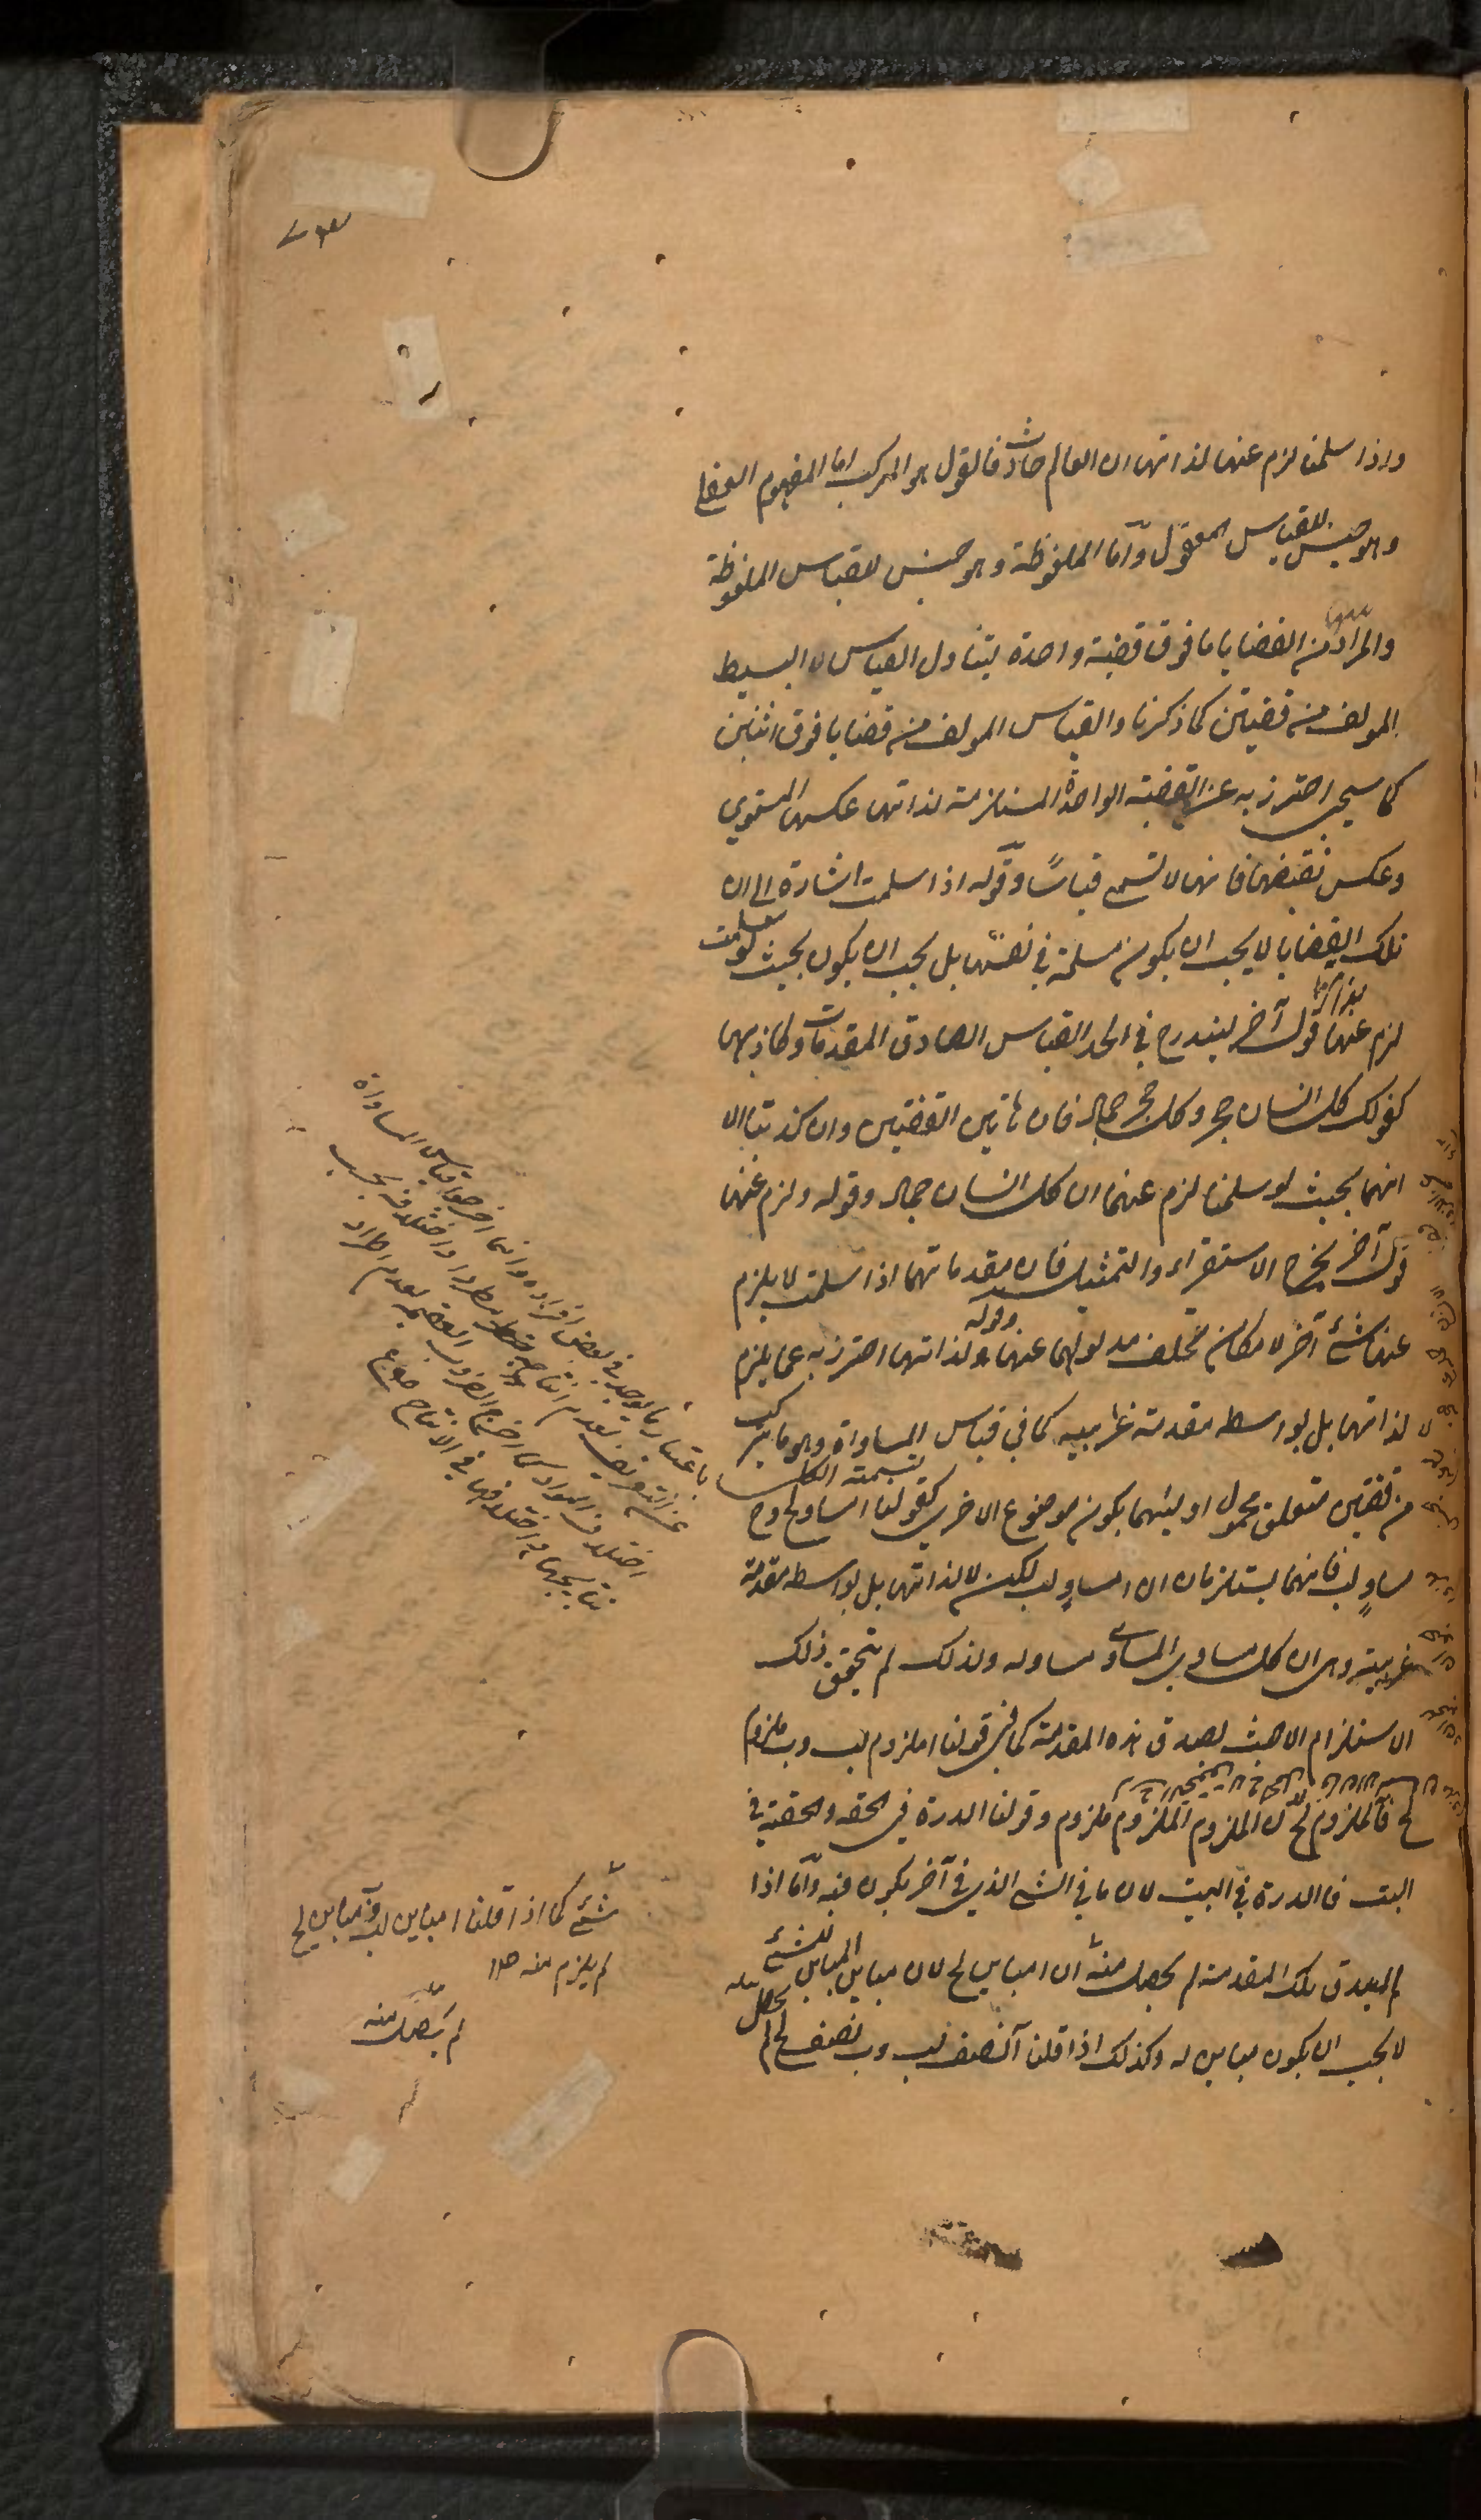 واذا سلمنا لزم عنهما لذاتهما ان العالم حادث فالقول هو المركب اما المفهوم العقلي
وهو جنس للقياس المعقول وآما الملفوظة وهو جنس للقياس الملفوظة
والمراد من القضايا ما فوق قضية واحدة ليتناول القياس لا البسيط
المولف من قضيتين كما ذكرنا والقياس المولف من قضايا فوق اثنتين
كما سيجي احترز به عن القضية الواحدة المستلزمة لذاتها عكسها المستوي
وعكس نقيضها فانها لا تسمى قياسًا وقوله اذا سلمت اشارة الى ان
تلك القضايا لا يجب ان يكون مسلمة في نفسها بل يجب ان يكون بحيث لو سلمت
لزم عنها لذاتها قول آخر ليندرج في الحد القياس الصادق المقدمات وكاذبها
كقولك كل انسان حجر وكل حجر جماد فان هاتين القضيتين وان كذبتا الا
انهما بحيث لو سلمنا لزم عنهما ان كل انسان جماد وقوله ولزم عنها
قول آخر يخرج الاستقراء والتمثيل فان مقدماتهما اذا سلمت لا يلزم
عنها شئ آخر لامكان تخلف مدلولهما عنهما وقوله لذاتها احترز به عما يلزم
لا لذاتها بل بواسطة مقدمة غريبه كما في قياس المساواة وهو ما يتركب
من قضيتين متعلق محمول اوليهما يكون موضوع الاخرى كقولنا ا مساو لج وج
مساوٍ لب فانهما يستلزمان ان ا مساوٍ لب لكن لا لذاتها بل بواسطة مقدمة
غريبة وهى ان كل مساوي المساوى مساو له ولذلك لم يتحقق ذلك
الاستلزام الا حيث يصدق هذه المقدمة كما في قولنا ا ملزوم لب وب ملزوم
لج فآ ملزوم لج لان الملزوم الملزوم ملزوم وقولنا الدرة في الحقه والحقة في
البيت فالدرة في البيت لان ما في الشئ الذي في آخر يكون فيه وآما اذا
لم يصدق تلك المقدمة لم يحصل منه ان ا مباين لج لان مباين المباين للشئ
لا يجب ان يكون مباين له وكذلك اذا قلنا آ نصف لب وب نصف لج لم يحصل
باعتبار ما يوجد في بعض افراده وانما اخرجوا قياس المساواة
عن التعريف لعدم انتاجه مطردا واختلافه بحسب
اختلاف المواد كما اخرج الضروب العقيمة لعدم اطراد
نتايجها واختلافها في الانتاج
شئ كما اذا قلنا ا مباين لب وب مباين لج
لم يلزم منه
لم يحصل منه